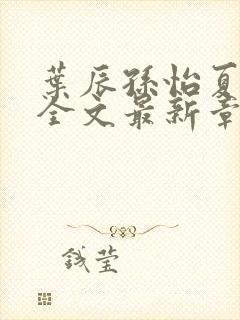 葉辰孫怡夏
全文最新章
钱莹